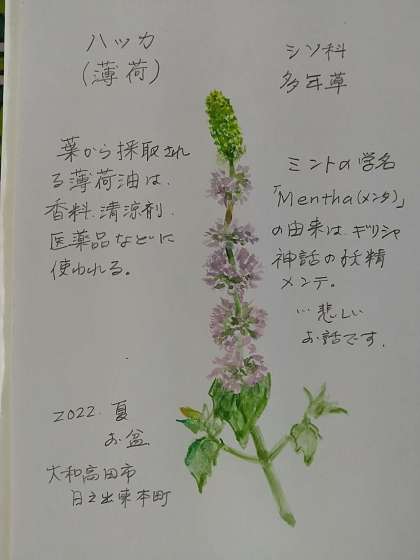 ハッカ
(薄荷)
シソ科
多年草
葉から採取され
る薄荷油は、
香料、清涼剤、
医薬品などに
使われる。
ミントの学名
「Mentha(メンタ)」
の由来は、ギリシャ
神話の妖精
メンテ。
…悲しい
お話です。
2022. 夏
お盆
大和高田市
日之出東本町